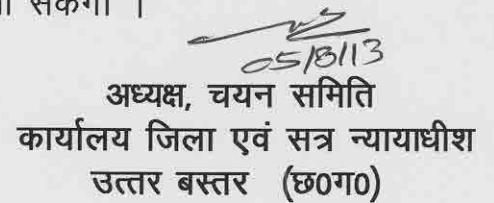 सकेगा ।
05/8/13
अध्यक्ष, चयन समिति
कार्यालय जिला एवं सत्र न्यायाधीश
उत्तर बस्तर (छ0ग0)